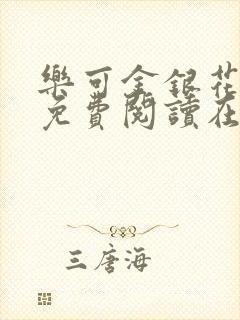 樂可金銀花
免費閱讀在
三唐海